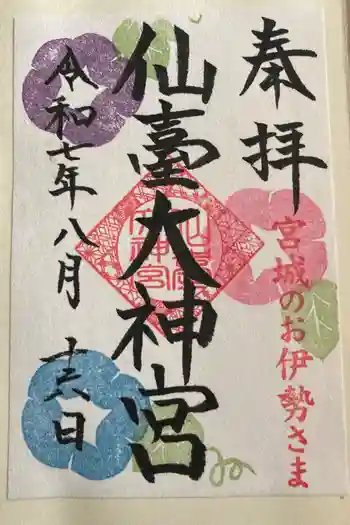 奉拝
宮城のお伊勢さま
仙臺大神宮
令和七年八月十六日